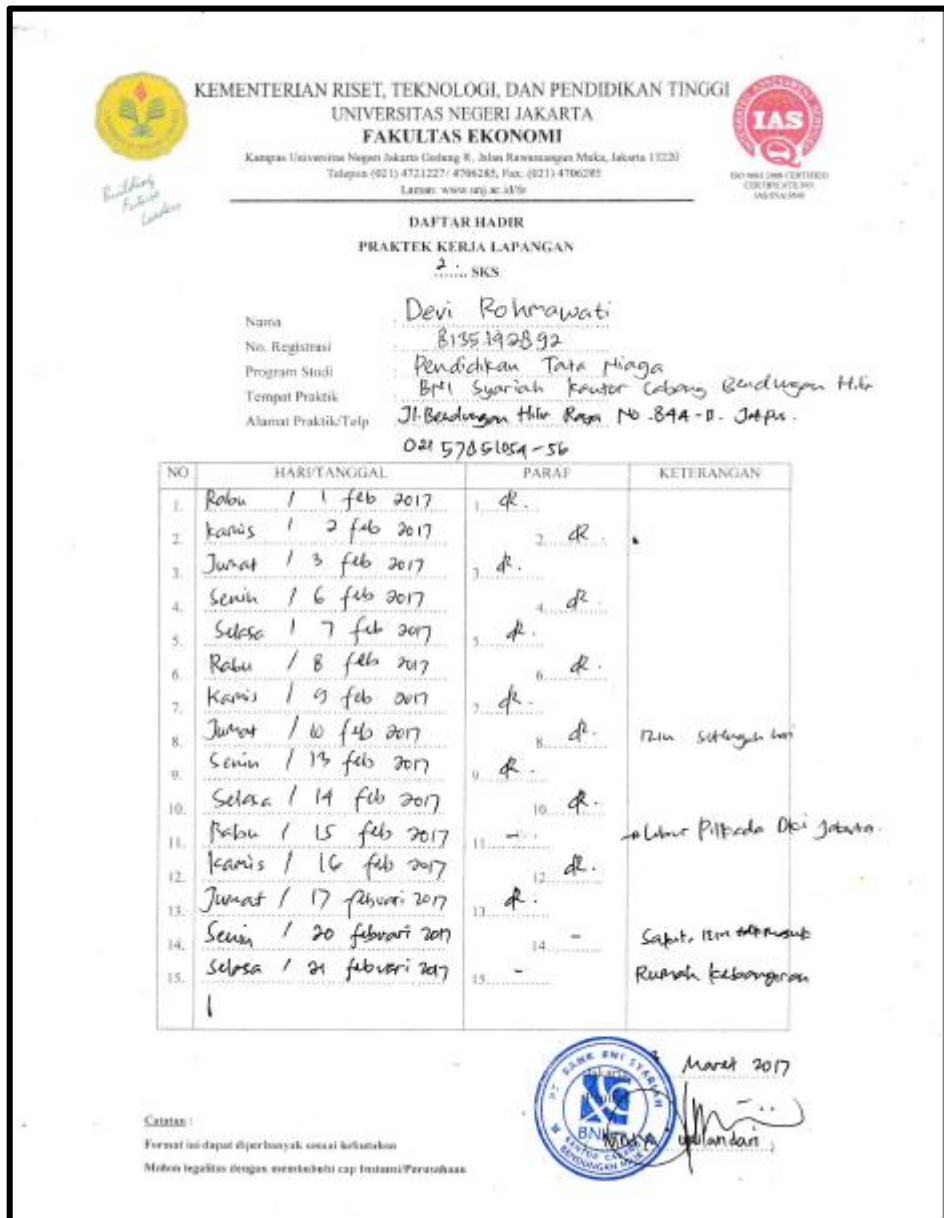 KEMENTERIAN RISET, TEKNOLOGI, DAN PENDIDIKAN TINGGI
UNIVERSITAS NEGERI JAKARTA
FAKULTAS EKONOMI
Kampus Universitas Negeri Jakarta Gedung R, Jalan Rawamangun Muka, Jakarta 13220
Telepon (021) 4721227/ 4706285, Fax: (021) 4706285
Laman: www.unj.ac.id/fe
Building
Future
Leaders
IAS
ISO 9001:2008 CERTIFIED
DAFTAR HADIR
PRAKTEK KERJA LAPANGAN
2 SKS
Nama : Devi Rohmawati
No. Registrasi : 8135192892
Program Studi : Pendidikan Tata Niaga
Tempat Praktik : BNI Syariah Kantor Cabang Bendungan Hilir
Alamat Praktik/Telp : Jl. Bendungan Hilir Raya No. 84A-B. Jakpus.
021
NO HARI/TANGGAL PARAF KETERANGAN
1. Rabu / 1 feb 2017 1.
2. Kamis / 2 feb 2017 2.
3. Jumat / 3 feb 2017 3.
4. Senin / 6 feb 2017 4.
5. Selasa / 7 feb 2017 5.
6. Rabu / 8 feb 2017 6.
7. Kamis / 9 feb 2017 7.
8. Jumat / 10 feb 2017 8. izin setengah hari
9. Senin / 13 feb 2017 9.
10. Selasa / 14 feb 2017 10.
11. Rabu / 15 feb 2017 11. - Libur Pilkada DKI Jakarta.
12. Kamis / 16 feb 2017 12.
13. Jumat / 17 febuari 2017 13.
14. Senin / 20 februari 2017 14. - Sakit, izin
15. Selasa / 21 febuari 2017 15. - Rumah kebanjiran
Jakarta, Maret 2017
PT. BANK BNI SYARIAH
BNI
KANTOR CABANG
BENDUNGAN HILIR
Catatan :
Format ini dapat diperbanyak sesuai kebutuhan
Mohon legalitas dengan membubuhi cap Instansi/Perusahaan